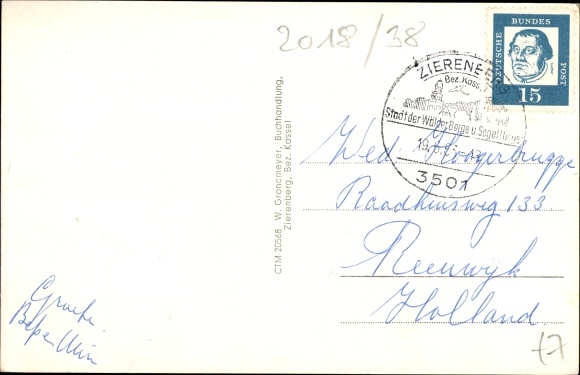 2018/38
DEUTSCHE BUNDES POST
15
ZIERENBERG
Bez. Kassel
Stadt der Wälder Berge u. Segelflieger
3501
Wed. Hoogerbrugge
Raadhuisweg 133
Reeuwijk
Holland
CTM 20568 W. Gronemeyer, Buchhandlung,
Zierenberg, Bez. Kassel
Groeten
Bep en Wim